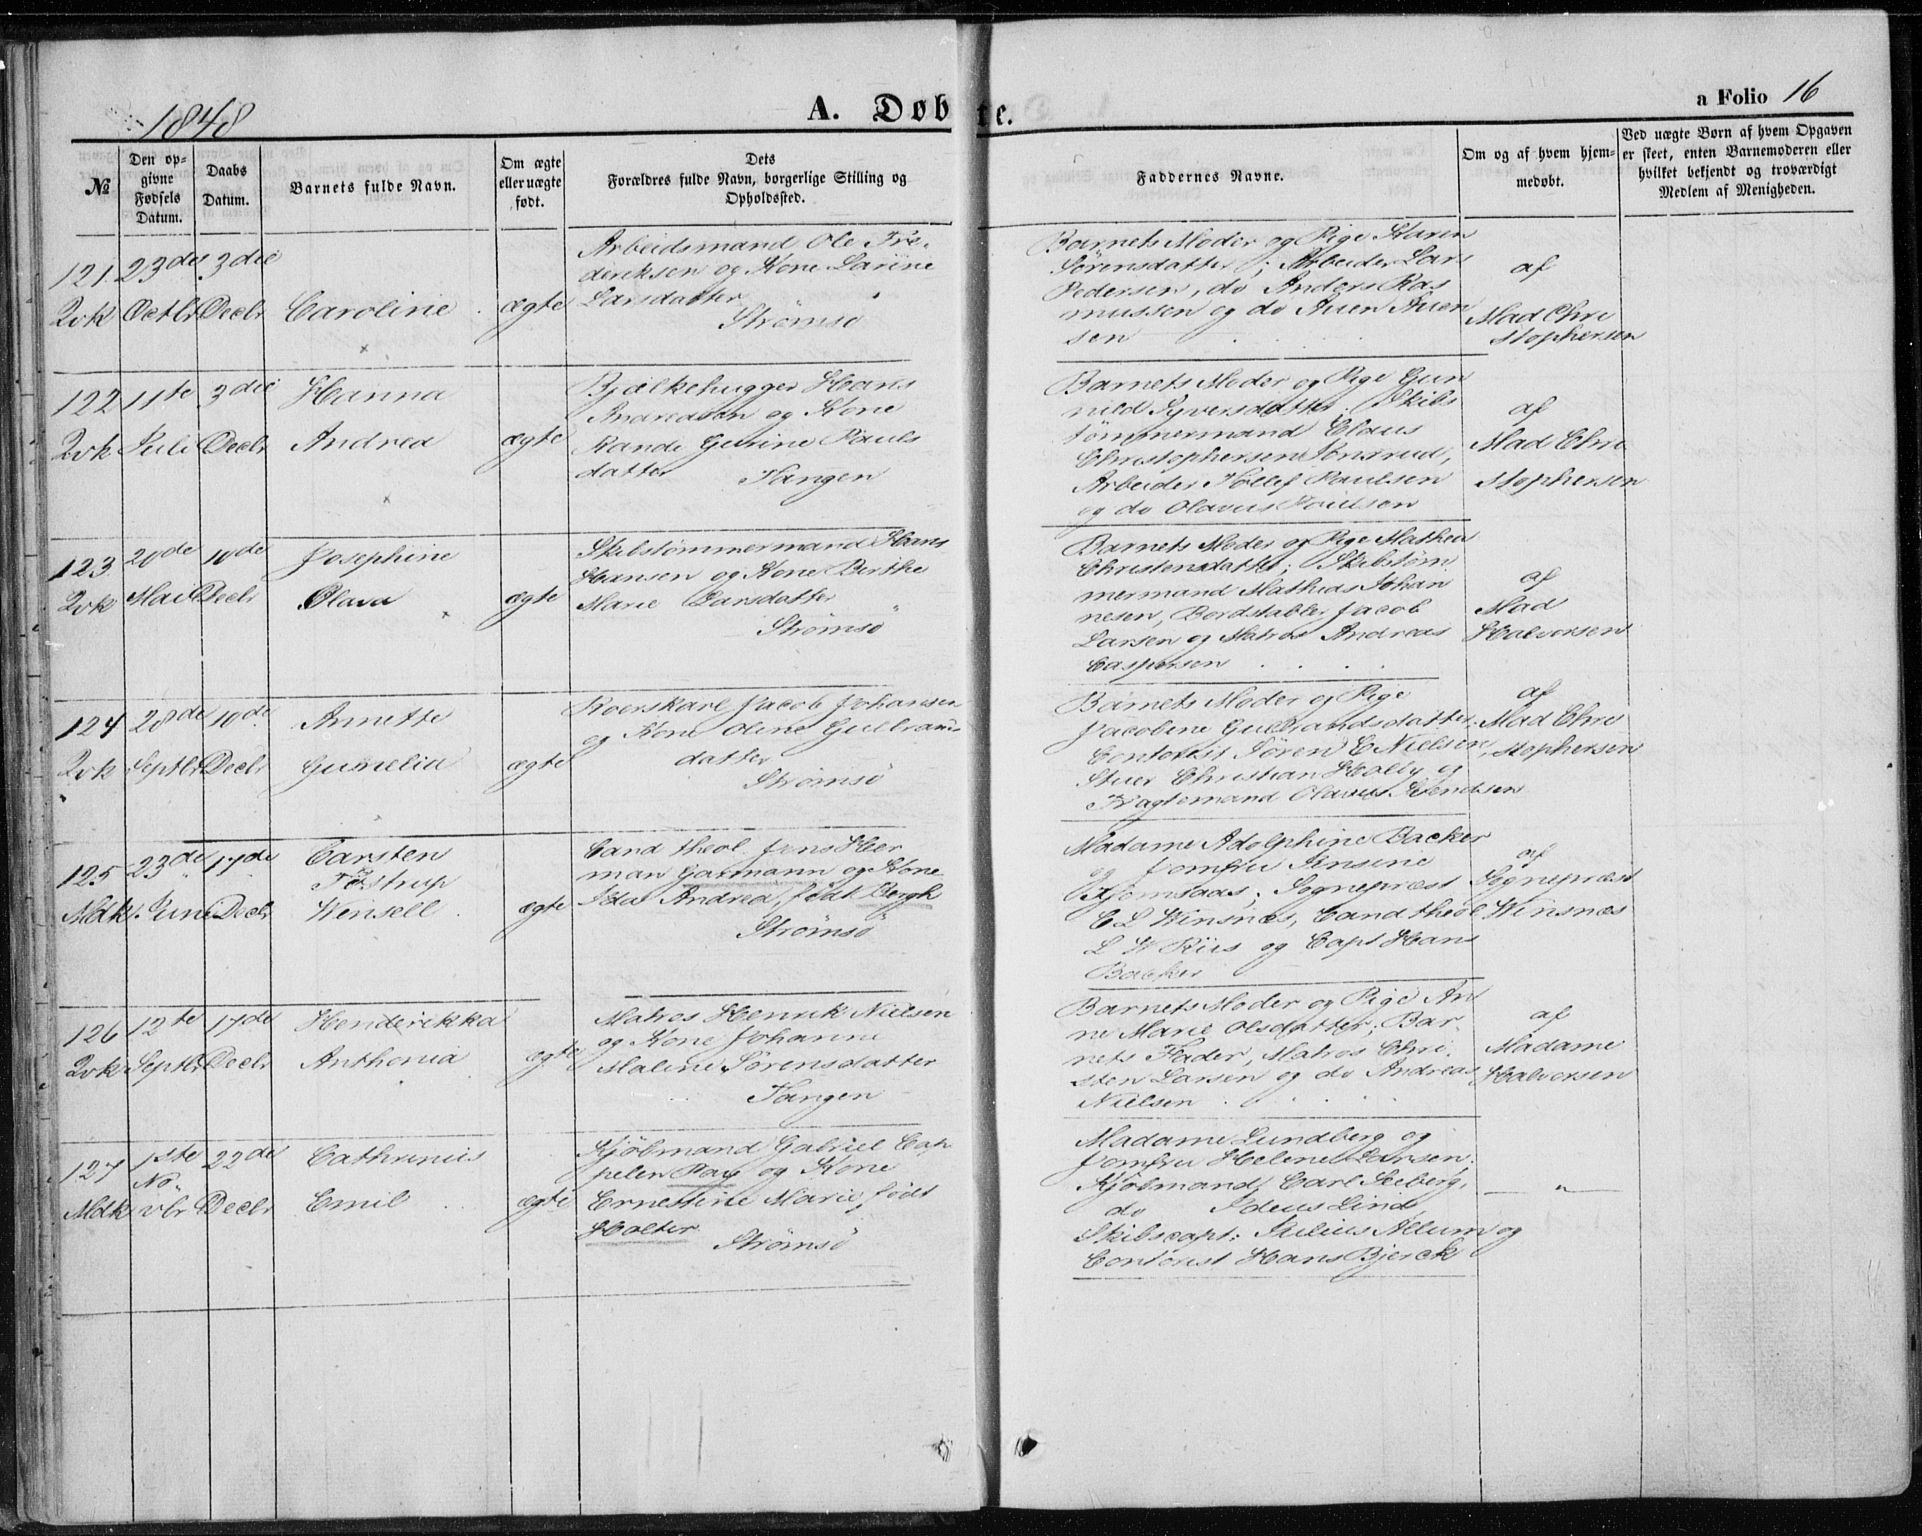 1848
A. Døbte.
a Folio 16
№
Den op-
givne
Fødsels
Datum.
Daabs
Datum.
Barnets fulde Navn.
Om ægte
eller uægte
født.
Dets
Forældres fulde Navn, borgerlige Stilling og
Opholdssted.
Faddernes Navne.
Om og af hvem hjem-
medøbt.
Ved uægte Børn af hvem Opgaven
er skeet, enten Barnemoderen eller
hvilket bekjendt og troværdigt
Medlem af Menigheden.
121.
Qvk
23de
Octbr
3die
Decbr
Caroline
ægte
Arbeidsmand Ole Fre-
deriksen og Kone Larine
Larsdatter
Strømsö
Barnets Moder og Pige Karen
Sörensdatter; Arbeider Lars
Pedersen, do Anders Ras
mussen og do Auen Auen
sen
af
Mad Chri
stophersen
122
Qvk
11te
Juli
3die
Decbr
Hanna
Andrea
ægte
Bjælkehugger Hans
Andreasen og Kone
Rande Gurine Pauls
datter
Tangen
Barnets Moder og Pige Gun
nild Syversdatter; Skibs
tömmermand Claus
Christophersen
Arbeider Tollef Paulsen
og do Olavus Poulsen
af
Mad Chri
stophersen
123
Qvk
20de
Mai
10de
Decbr
Josephine
Olava
ægte
Skibstømmermand Hans
Hansen og Kone Berthe
Marie Larsdatter
Strømsö
Barnets Moder og Pige Mathea
Christensdatter; Skibstøm
mermand Mathias Johan
nesen, Bordstabler Jacob
Larsen og Matros Andreas
Caspersen
af
Mad
Halvorsen
124
Qvk
28de
Septbr
10de
Decbr
Annette
Gunelia
ægte
Roerskarl Jacob Johansen
og Kone Oline Gulbrans
datter
Strømsö
Barnets Moder og Pige
Jacobine Gulbrandsdatter;
Contorist Sören C Nielsen
Stuer Christian Holby og
Fragtemand Olaves Svendsen
af
Mad Chri
stophersen
125
Mdk
23de
Juni
17de
Decbr
Carsten
Tostrup
Wensell
ægte
Cand theol Jens Her
man Garmann og Kone
Ida Andrea, født Bergh
Strømsö
Madame Adolphine Backer
og Jomfru Jensine
Sognepræst
C L Winsnes, Cand theol
L W Riis og Capt Hans
Backer
af
Sognepræst
Winsnes
126
Qvk
12te
Septbr
17de
Decbr
Henderikka
Anthonia
ægte
Matros Henrik Nielsen
og Kone Johanne
Maline Sörensdatter
Tangen
Barnets Moder og Pige An
ne Marie Olsdatter; Bar-
nets Fader, Matros Chri-
sten Larsen og do Andreas
Nielsen
af
Madame
Halvorsen
127
Mdk
1ste
No-
vbr
22de
Decbr
Cathrinus
Emil
ægte
Kjøbmand Gabriel Cap
pelen Pay og Kone
Ernestine Marie, født
Holter
Strømsö
Madame Lundberg og
Jomfru Helene Larsen;
Kjøbmand Carl Seeberg,
do Lind
Skibscapt: Julius Allum og
Contorist Hans Bjerck
— " —